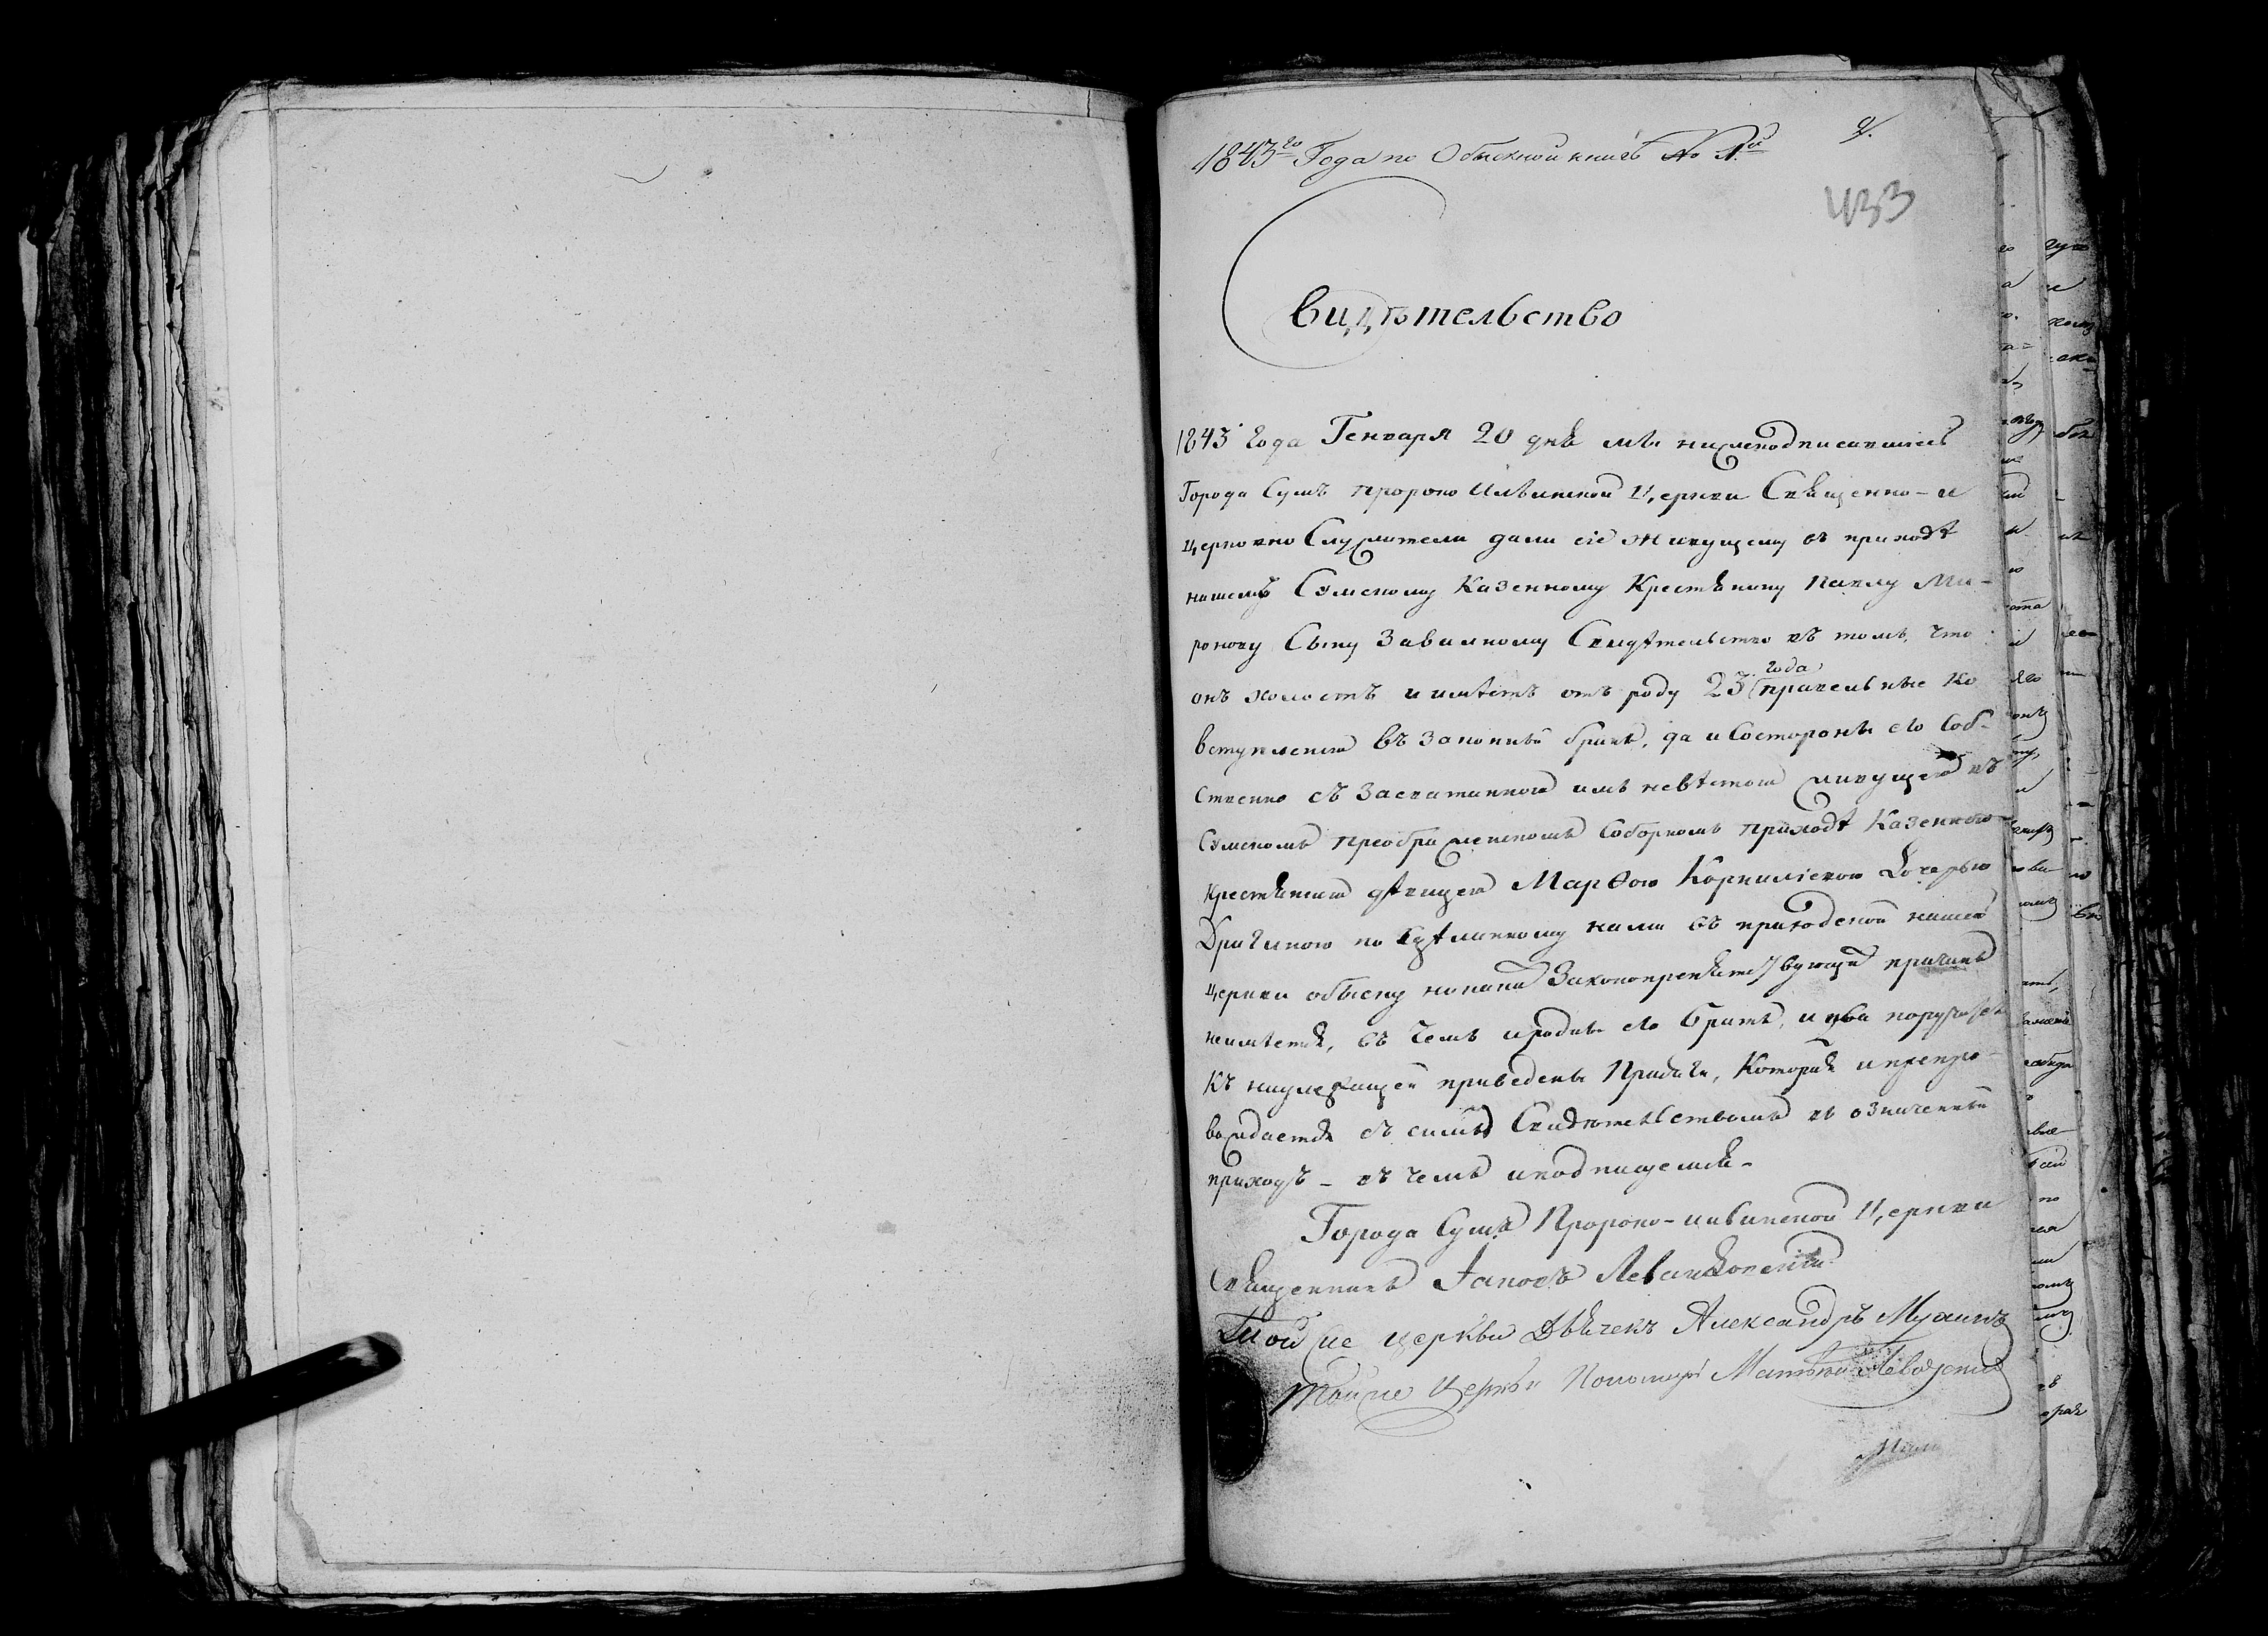 1843го Года по Обыскной книгѣ No 1й
433
Свидѣтельство
1843 года Генваря 20 дня мы нижеподписавшиесь
Города Сумъ Пророко Ильинской Церкви Священно - и
церковно Служители дали сіе живущему въ приходѣ
нашемъ Сумскому Казенному Крестьянину Павлу Ми-
ронову Сыну Свидѣтельство въ томъ, что
онъ холостъ и имѣетъ отъ роду 23 года правельные ко
вступленію въ законный бракъ, да и Состороны его Соб-
ственно съ Засватанною имъ невѣстою живущею въ
Сумскомъ Преображенскомъ Соборномъ приходѣ Казенною
Крестьянкою дѣвицею Марѳою Корниліевою Дочерью
по Сдѣланному нами въ приходской нашей
Церкви обыску никакихъ Законопрепятствующихъ причинъ
неимѣется, въ чемъ и родные его братъ, и два поручителя
Къ надлежащей приведены Присяги, Которая и препро-
вождается съ симъ Свидѣтельствомъ въ означенный
приходъ - въ чемъ и подпищемся -
Города Сумъ Пророко-ильинской Церкви
Священникъ Іаковъ
Той же церкви Дьячекъ Александръ Мухинъ
Той же Церкви Пономарь